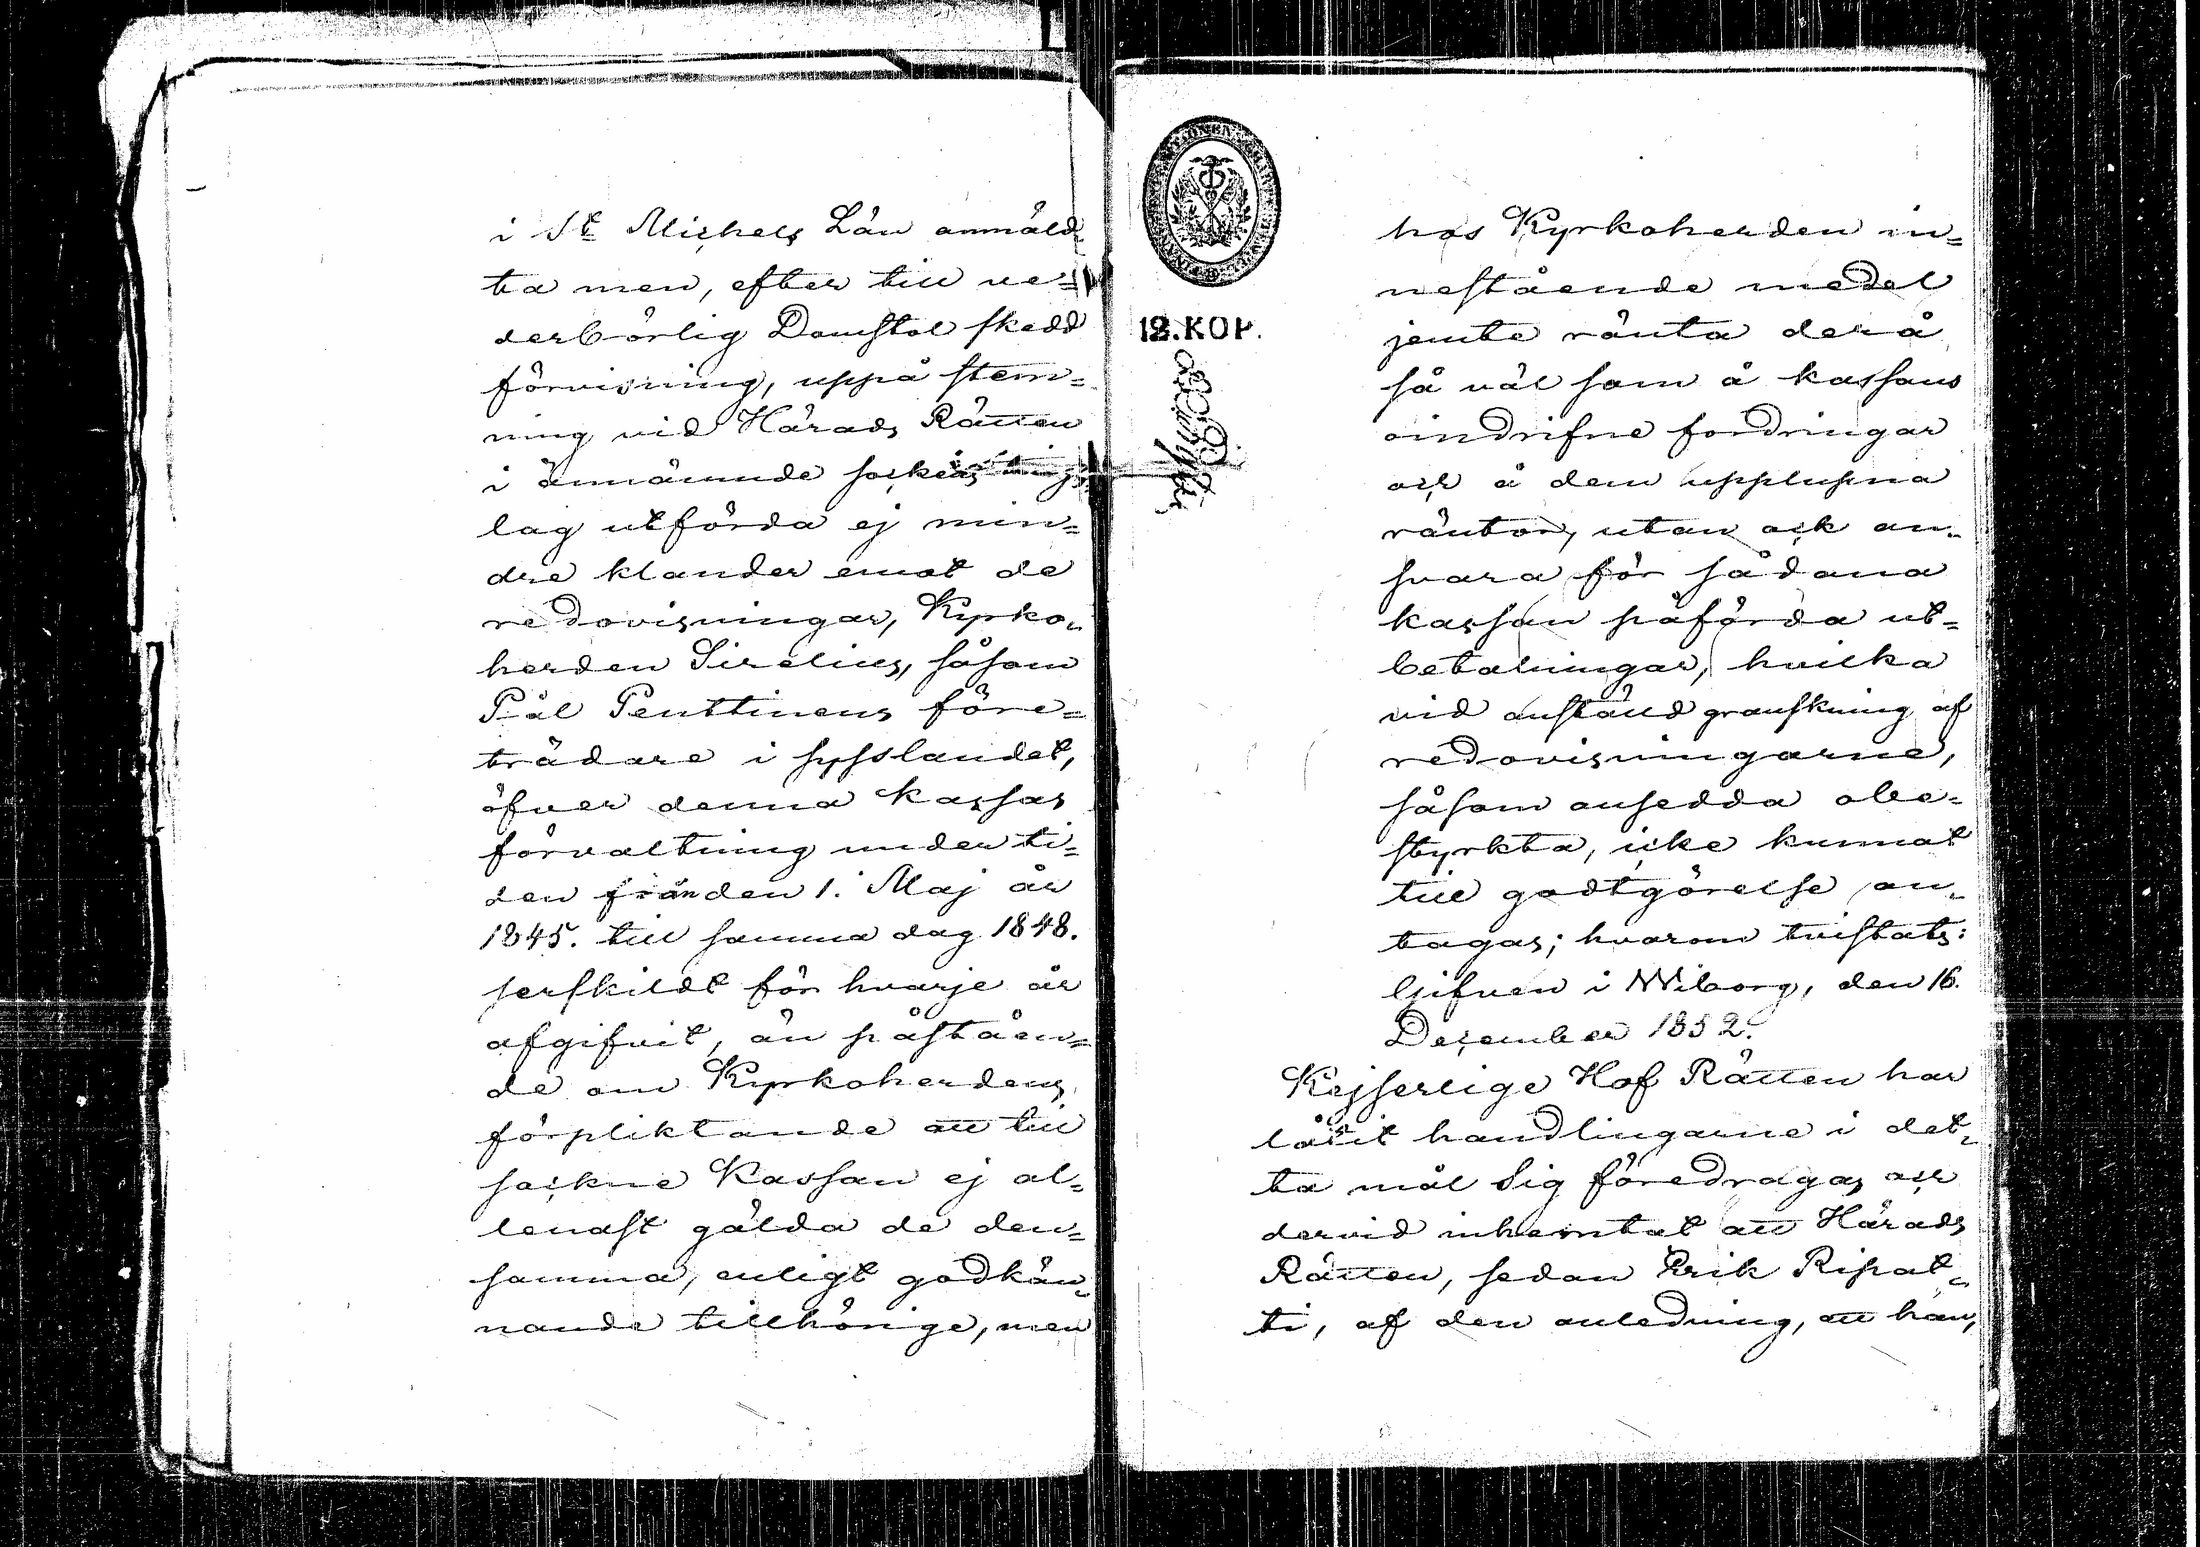 i S:t Michels Län anmäld¬
ta men, efter till ve¬
derbörlig Domstol skedd
förvisning, uppå stem¬
ning vid Härads Rätten
i ännämnde sockens ting¬
lag utförda ej min¬
dre klander emot de
redovisningar, Kyrko¬
herden Sirelius, såsom
Pål Penttinens före¬
trädare i sysslandet,
öfver denna kassas
förvaltning under ti¬
den från den 1. Maj år
1845. till samma dag 1848.
serskildt för hvarje år
afgifvit, än påståen¬
de om Kyrkoherdens
förpliktande att till
sockne Kassan ej al¬
lenast gälda de den¬
samma, enligt godkän¬
nande tillhörige, men
12. KOP.
hos Kyrkoherden in¬
nestående medel
jemte ränta derå
så väl som å kassans
oindrifne fordringar
och å dem upplupna
räntor, utan ock an¬
svara för sådana
kassan påförda ut¬
betalningar, hvilka
vid anstäld granskning af
redovisningarne,
såsom ansedda obe¬
styrkta, icke kunnat
till godtgörelse an¬
tagas; hvarom tvistats:
Gifven i Wiborg, den 16.
December 1852.
Kejserlige Hof Rätten har
låtit handlingarne i det¬
ta mål Sig föredragas och
dervid inhemtat att Härads
Rätten, sedan Erik Ripat¬
ti, af den anledning, att han,